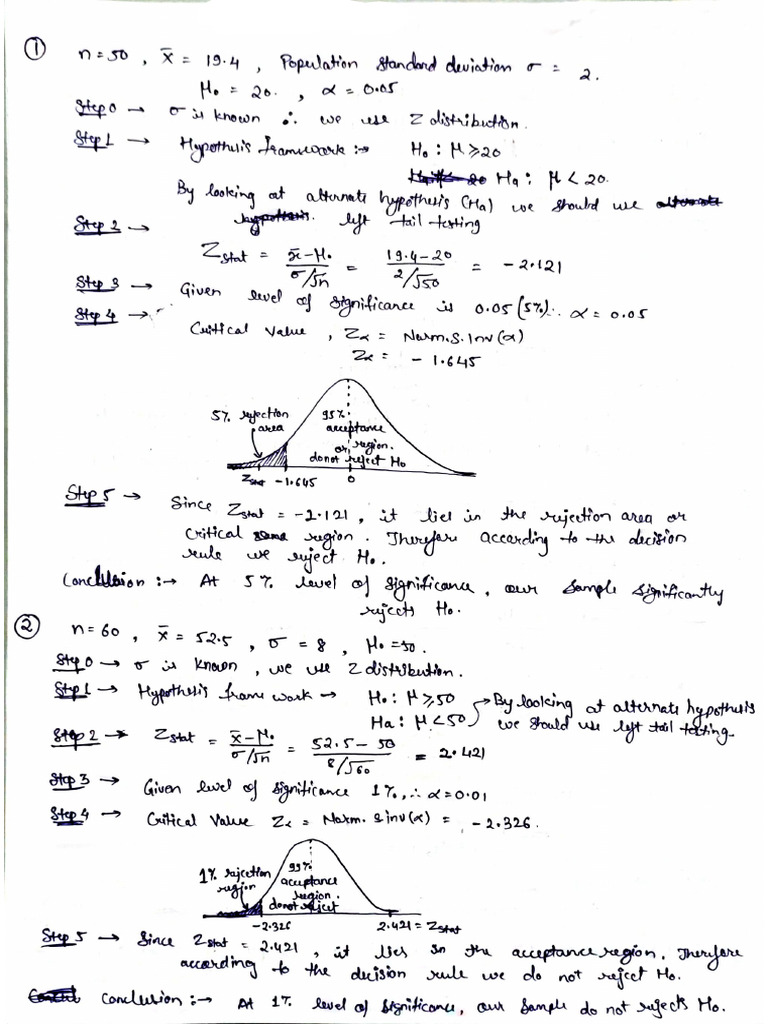 ① n=50 , x̄ = 19.4 , Population standard deviation σ = 2.
μ₀ = 20. , α = 0.05
Step 0 → σ is known ∴ we use Z distribution.
Step 1 → Hypothesis framework :→ H₀ : μ ≥ 20
Ha : μ < 20.
By looking at alternate hypothesis (Ha) we should use
left tail testing
Step 2 →
Zstat = x̄-μ₀ / σ/√n = 19.4-20 / 2/√50 = -2.121
Step 3 → Given level of significance is 0.05 (5%) ∴ α = 0.05
Step 4 →
Critical Value , Zα = Norm.S.Inv(α)
Zα = -1.645
5% rejection area
95% acceptance or region. do not reject H₀
Zstat -1.645 0
Step 5 → Since Zstat = -2.121 , it lies in the rejection area or
critical region. Therefore according to the decision
rule we reject H₀.
Conclusion :→ At 5% level of significance, our sample significantly
rejects H₀.
② n=60 , x̄ = 52.5 , σ = 8 , μ₀ = 50.
Step 0 → σ is known , we use Z distribution.
Step 1 → Hypothesis frame work → H₀ : μ ≥ 50 → By looking at alternate hypothesis
Ha : μ < 50 we should use left tail testing.
Step 2 → Zstat = x̄-μ₀ / σ/√n = 52.5 - 50 / 8/√60 = 2.421
Step 3 → Given level of significance 1%, ∴ α=0.01
Step 4 → Critical Value Zα = Norm. s inv(α) = -2.326.
1% rejection region
99% acceptance region. do not reject
-2.326 2.421 = Zstat
Step 5 → Since Zstat = 2.421 , it lies in the acceptance region. Therefore
according to the decision rule we do not reject H₀.
Conclusion :→ At 1% level of significance, our sample do not rejects H₀.